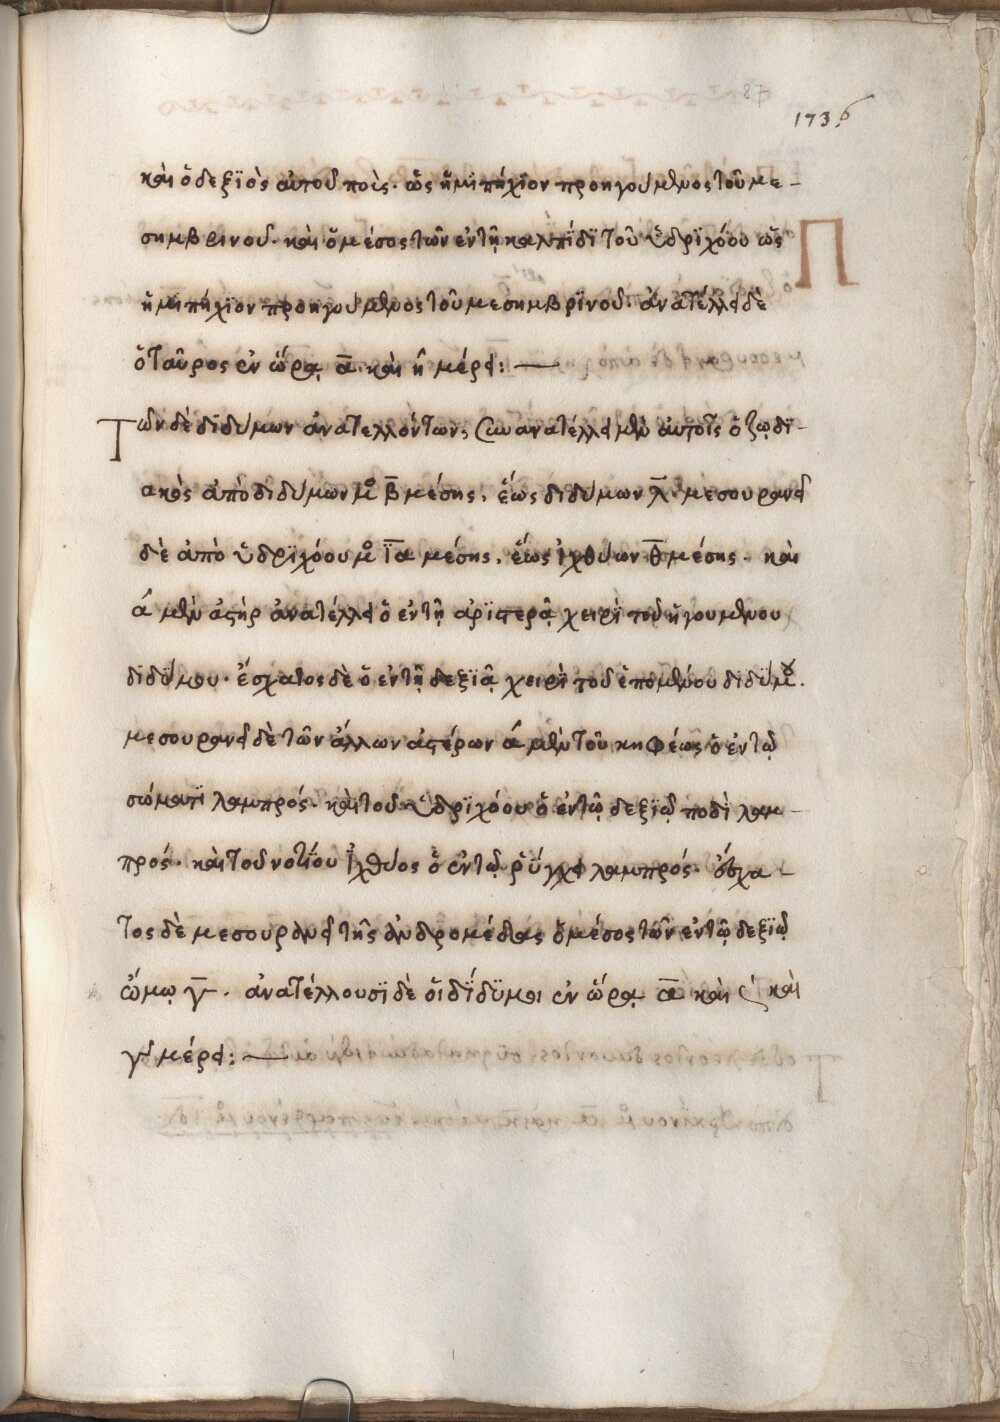 87
173
καὶ ὁ δεξϊὸς αὐτοῦ ποὺς. ὡς ἡμϊπήχϊον προηγούμενος τοῦ με-
σημβρινοῦ. καὶ ὁ μέσος τῶν ἐν τῇ καλπίδϊ τοῦ ὑδρϊχόου ὡς
ἡμϊπήχϊον προηγούμενος τοῦ μεσημβρϊνοῦ. ἀνατέλλει δὲ
ὁ Ταῦρος ἐν ὥρᾳ α̅. καὶ ἡ μέρει:
Τῶν δὲ διδύμων ἀνατελλόντων, συνανατέλλει μὲν αὐτοῖς ὁ ζῳδϊ-
ακὸς ἀπὸ διδύμων μο β̅ μέσης. ἕως διδύμων λ̅. μεσουρανεῖ
δὲ ἀπὸ ὑδρϊχόου μο ϊα̅ μέσης. ἕως ἰχθύων θ̅ μέσης. καὶ
α´ μὲν ἀστὴρ ἀνατέλλει ὁ ἐν τῇ ἀρϊστερᾷ χειρὶ τοῦ ἡγουμένου
διδύμου. ἔσχατος δὲ ὁ ἐν τῇ δεξϊᾷ χειρὶ τοῦ ἑπομένου διδύμου.
μεσουρανεῖ δὲ τῶν ἄλλων ἀστέρων α´ μὲν τοῦ κηφέως ὁ ἐν τῷ
σώματϊ λαμπρός. καὶ τοῦ ὑδρϊχόου ὁ ἐν τῷ δεξϊῷ ποδὶ λαμ-
πρός. καὶ τοῦ νοτΐου ἰχθύος ὁ ἐν τῷ ῥύγχει λαμπρός. ἔσχα-
τος δὲ μεσουρανεῖ τῆς ἀνδρομέδας ὁ μέσος τῶν ἐν τῷ δεξϊῷ
ὤμῳ γ̅. ἀνατέλλουσϊ δὲ οἱ δΐδϋμοι ἐν ὥρᾳ α̅ καὶ ς καὶ
γ´ μέρει:
Π